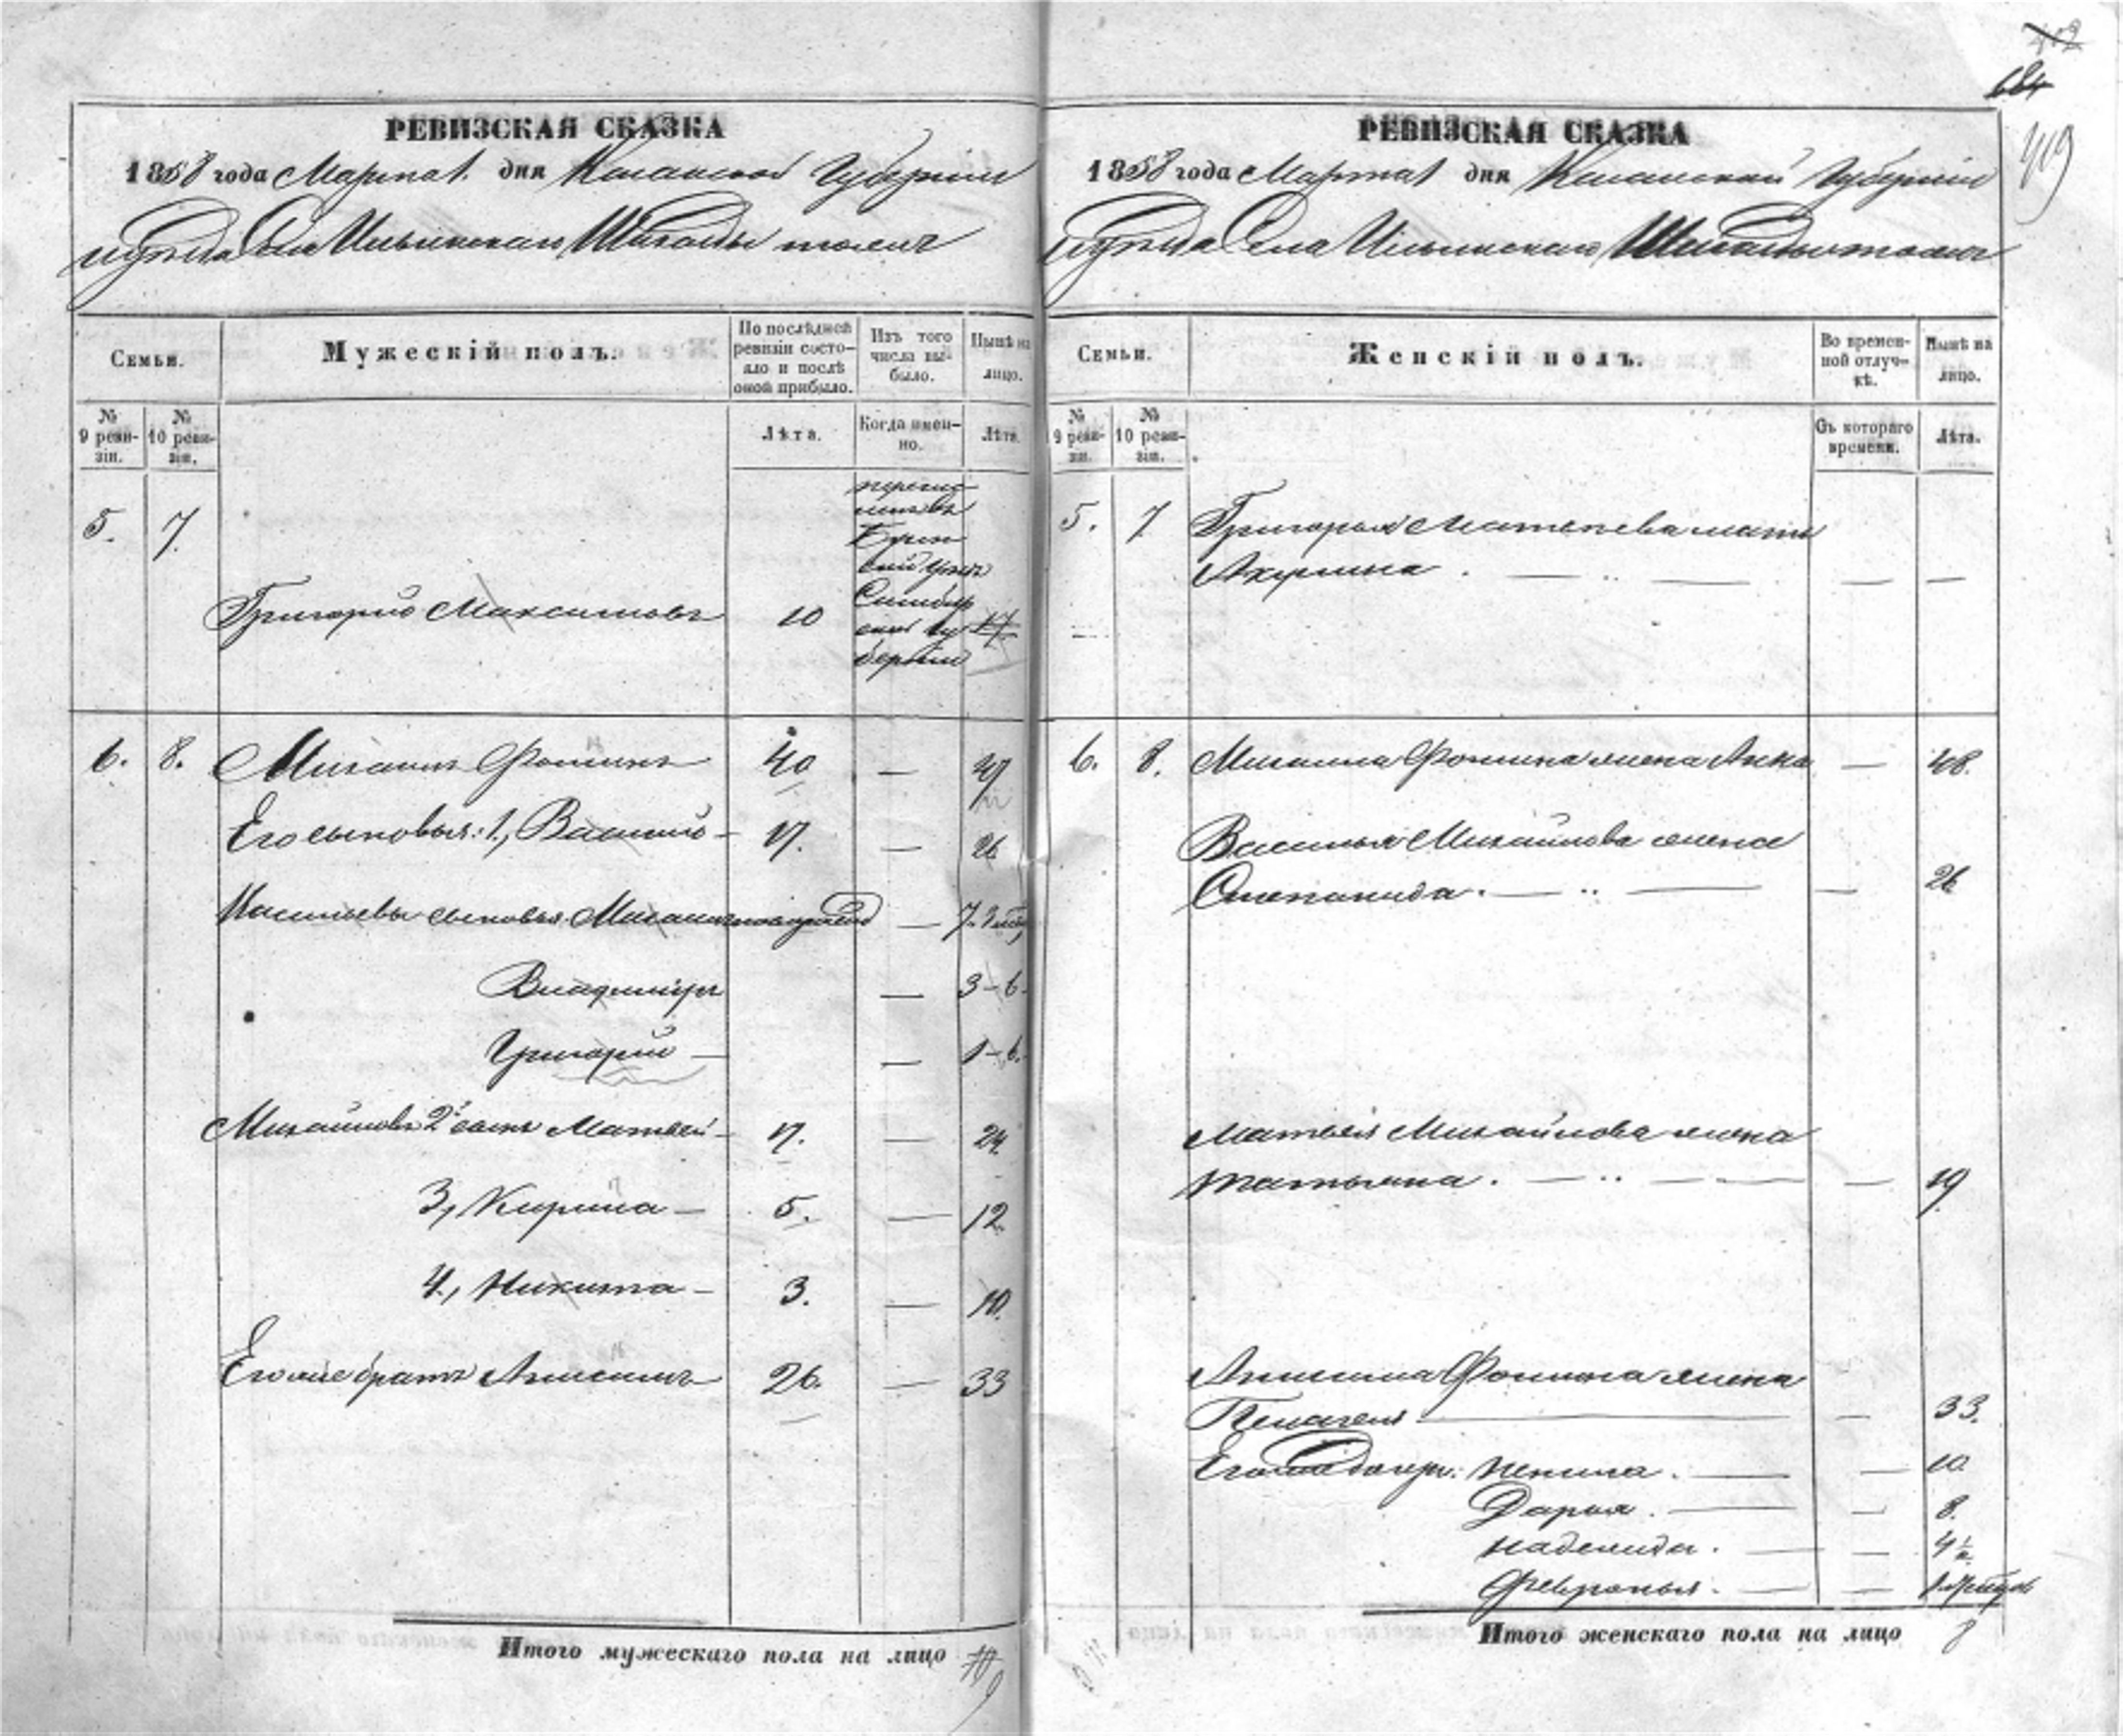 402
684
419
РЕВИЗСКАЯ СКАЗКА
1858 года Марта 1 дня Казанской Губерніи
уѣзда Села Ильинскаго
Семьи.
Мужескій полъ.
По послѣдней ревизіи состояло и послѣ оной прибыло.
Изъ того числа выбыло.
Нынѣ на лицо.
№ 9 ревизіи.
№ 10 ревизіи.
Лѣта.
Когда именно.
Лѣта.
5. 7. Григорій Максимовъ 10
Симбирской губерніи 17
6. 8. Михаилъ Фоминъ 40 — 47
Его сыновья: 1, Василій — 17. — 26
Васильевы сыновья Михаилъ — 7.
Владиміръ — 3-6.
Григорій — — 1-6.
Михайловъ 2й сынъ Матвей — 17. — 24.
3, Кирила — 5. — 12.
4, Никита — 3. — 10.
Его же братъ Анисимъ 26. — 33
Итого мужескаго пола на лицо 10 9
РЕВИЗСКАЯ СКАЗКА
1858 года Марта 1 дня Казанской Губерніи
уѣзда Села Ильинскаго
Семьи.
Женскій полъ.
Во временной отлучкѣ.
Нынѣ на лицо.
№ 9 ревизіи.
№ 10 ревизіи.
Съ котораго времени.
Лѣта.
5. 7 Григорья Матвеева мать
Акулина . — „ — — —
6. 8. Михаила Фомина жена Анна — 48.
Василья Михайлова жена
Степанида . — „ — — 26
Матвея Михайлова жена
Татьяна . — „ — — — 19.
Анисима Фомина жена
Пелагея — — 33.
Его же дочери: Ненила . — — 10
Дарья . — — 8.
Надежда . — — 4 1/2
Февронья . — —
Итого женскаго пола на лицо 8